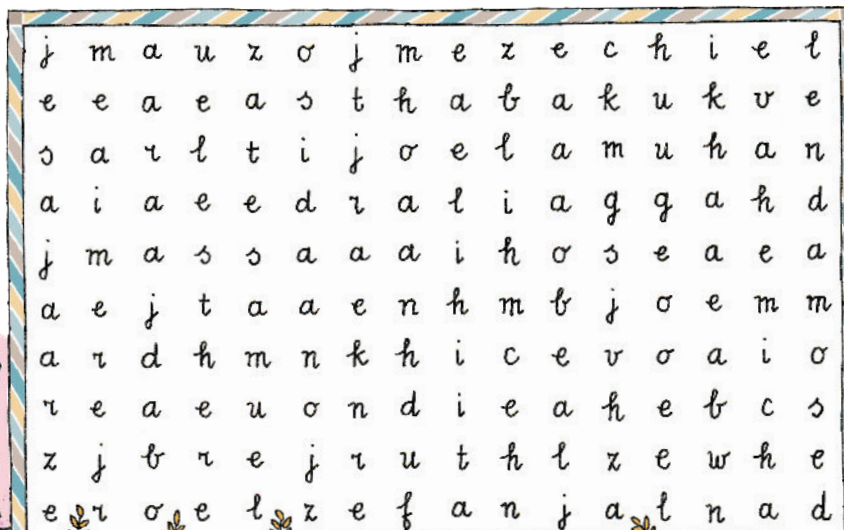 j m a u z o j m e z e c h i e l
e e a e a s t h a b a k u k v e
s a r l t i j o e l a m u h a n
a i a e e d r a l i a g g a h d
j m a s s a a a i h o s e a e a
a e j t a a e n h m b j o e m m
a r d h m n k h i c e v o a i o
r e a e u o n d i e a h e b c s
z j b r e j r u t h l z e w h e
e r o e l z e f a n j a l n a d